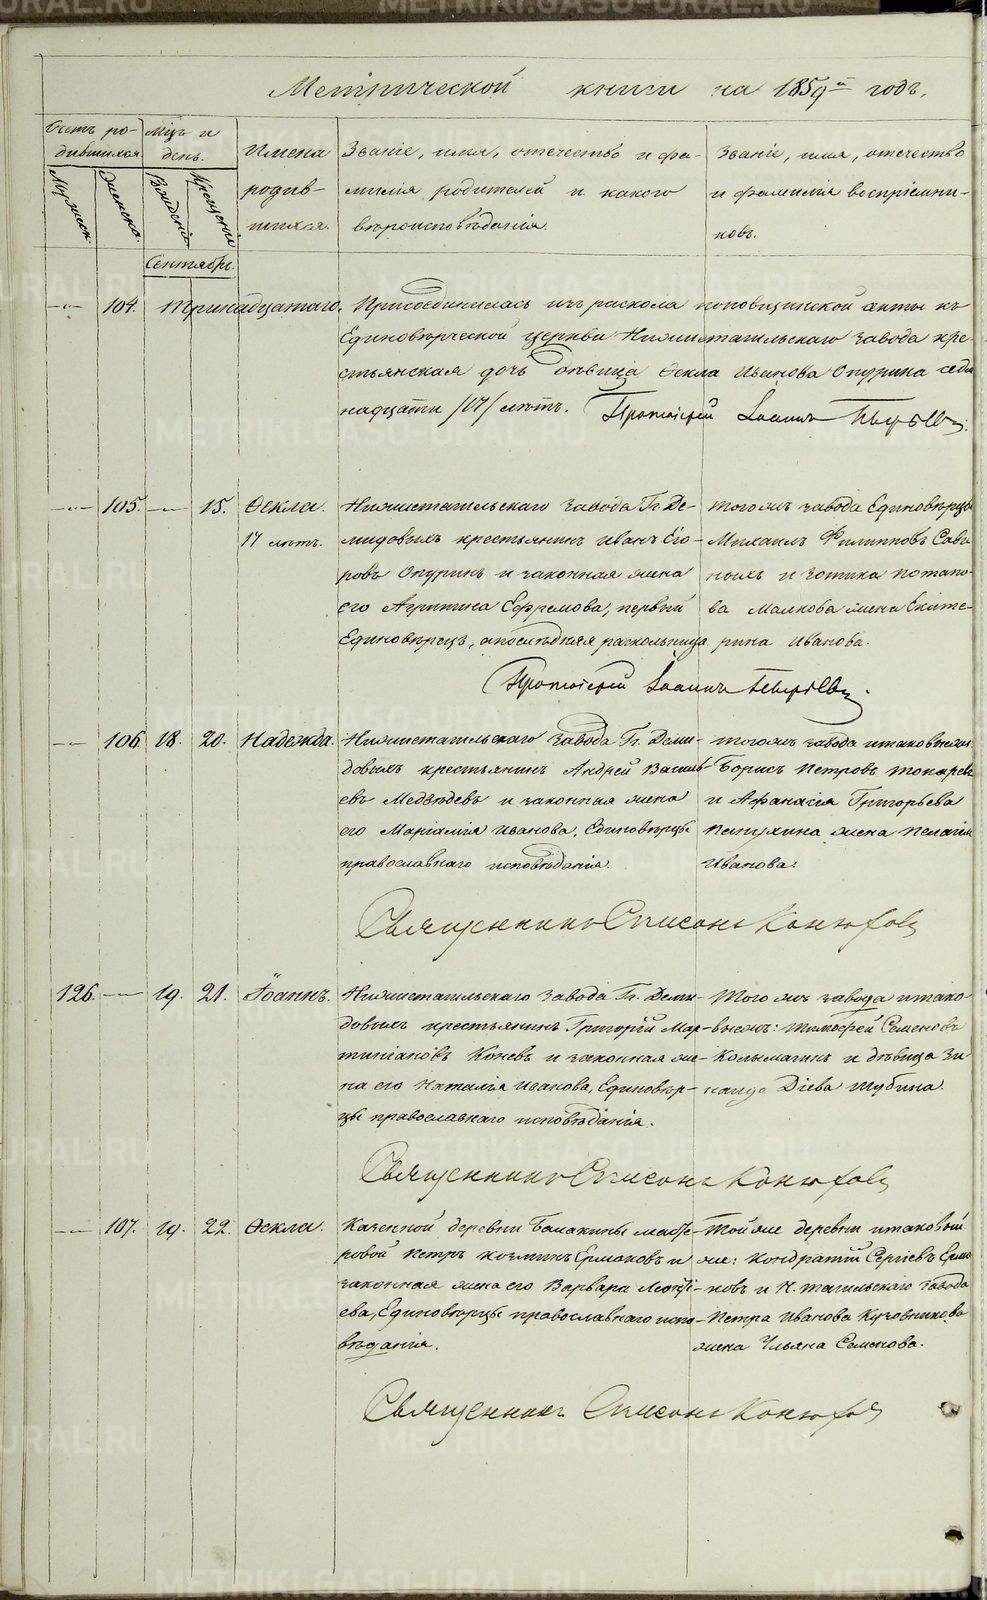 Метрической книги на 1859й годъ.
Счетъ ро-
дившихся.
Мужеск.
Женска.
Мцъ и
день.
Рожденія
Крещенія
Имена
родив-
шихся.
Званіе, имя, отечество и фа-
милія родителей и какого
вѣроисповѣданія.
Званіе, имя, отечество
и фамилія воспріемни-
ковъ.
Сентябрь.
104. Тринадцатаго. Присоединилась изъ раскола поповщинской секты къ
Единовѣрческой церкви Нижнетагильскаго завода кре-
стьянская дочь дѣвица Ѳекла Иванова Опурина семи
надцати /17/ лѣтъ. Протоіерей Іоаннъ
105. — 15. Ѳекла.
17 лѣтъ.
Нижнетагильскаго завода Гг. Де-
мидовыхъ крестьянинъ Иванъ Его-
ровъ Опуринъ и законная жена
его Агрипина Ефремова, первый
Единовѣрецъ, а послѣдняя раскольница.
тогожъ завода Единовѣрцы
Михаилъ Филипповъ
и Зотика Потапо-
ва Малкова жена Екате-
рина Иванова.
Протоіерей Іоаннъ
106. 18. 20. Надежда.
Нижнетагильскаго завода Гг. Деми-
довыхъ крестьянинъ Андрей Василь-
евъ Медвѣдевъ и законная жена
его Маріамія Иванова, Единовѣрцы
православнаго исповѣданія.
тогожъ завода итаковыежъ
Борисъ Петровъ Токаревъ
и Афанасія Григорьева
жена Пелагія
Иванова.
Священникъ Симеонъ Конюховъ
126. — 19. 21. Іоаннъ.
Нижнетагильскаго завода Гг. Деми-
довыхъ крестьянинъ Григорій Мар-
тиніановъ Коневъ и законная же-
на его Наталія Иванова, Единовѣр-
цы православнаго исповѣданія.
Того жъ завода итако-
выежъ: Тимофей Семеновъ
Колмагинъ и дѣвица Зи
наида Діева Шубина.
Священникъ Симеонъ Конюховъ
107. 19. 22. Ѳекла.
Казенной деревни Балакины масте-
ровой Петръ Козминъ Ермаковъ и
законная жена его Варвара Леонті-
ева, Единовѣрцы православнаго испо-
вѣданія.
Тойже деревни итаковый
же: Кондратій Сергіевъ Ерма
ковъ и Н. тагильскаго завода
Петра Иванова Кузовникова
жена Ульяна Семенова.
Священникъ Симеонъ Конюховъ
METRIKI.GASO-URAL.RU